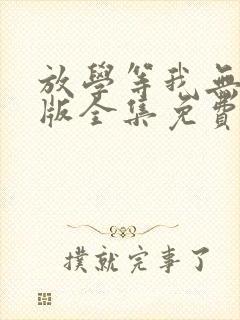 放學等我無
版全集免費
撲就完事了